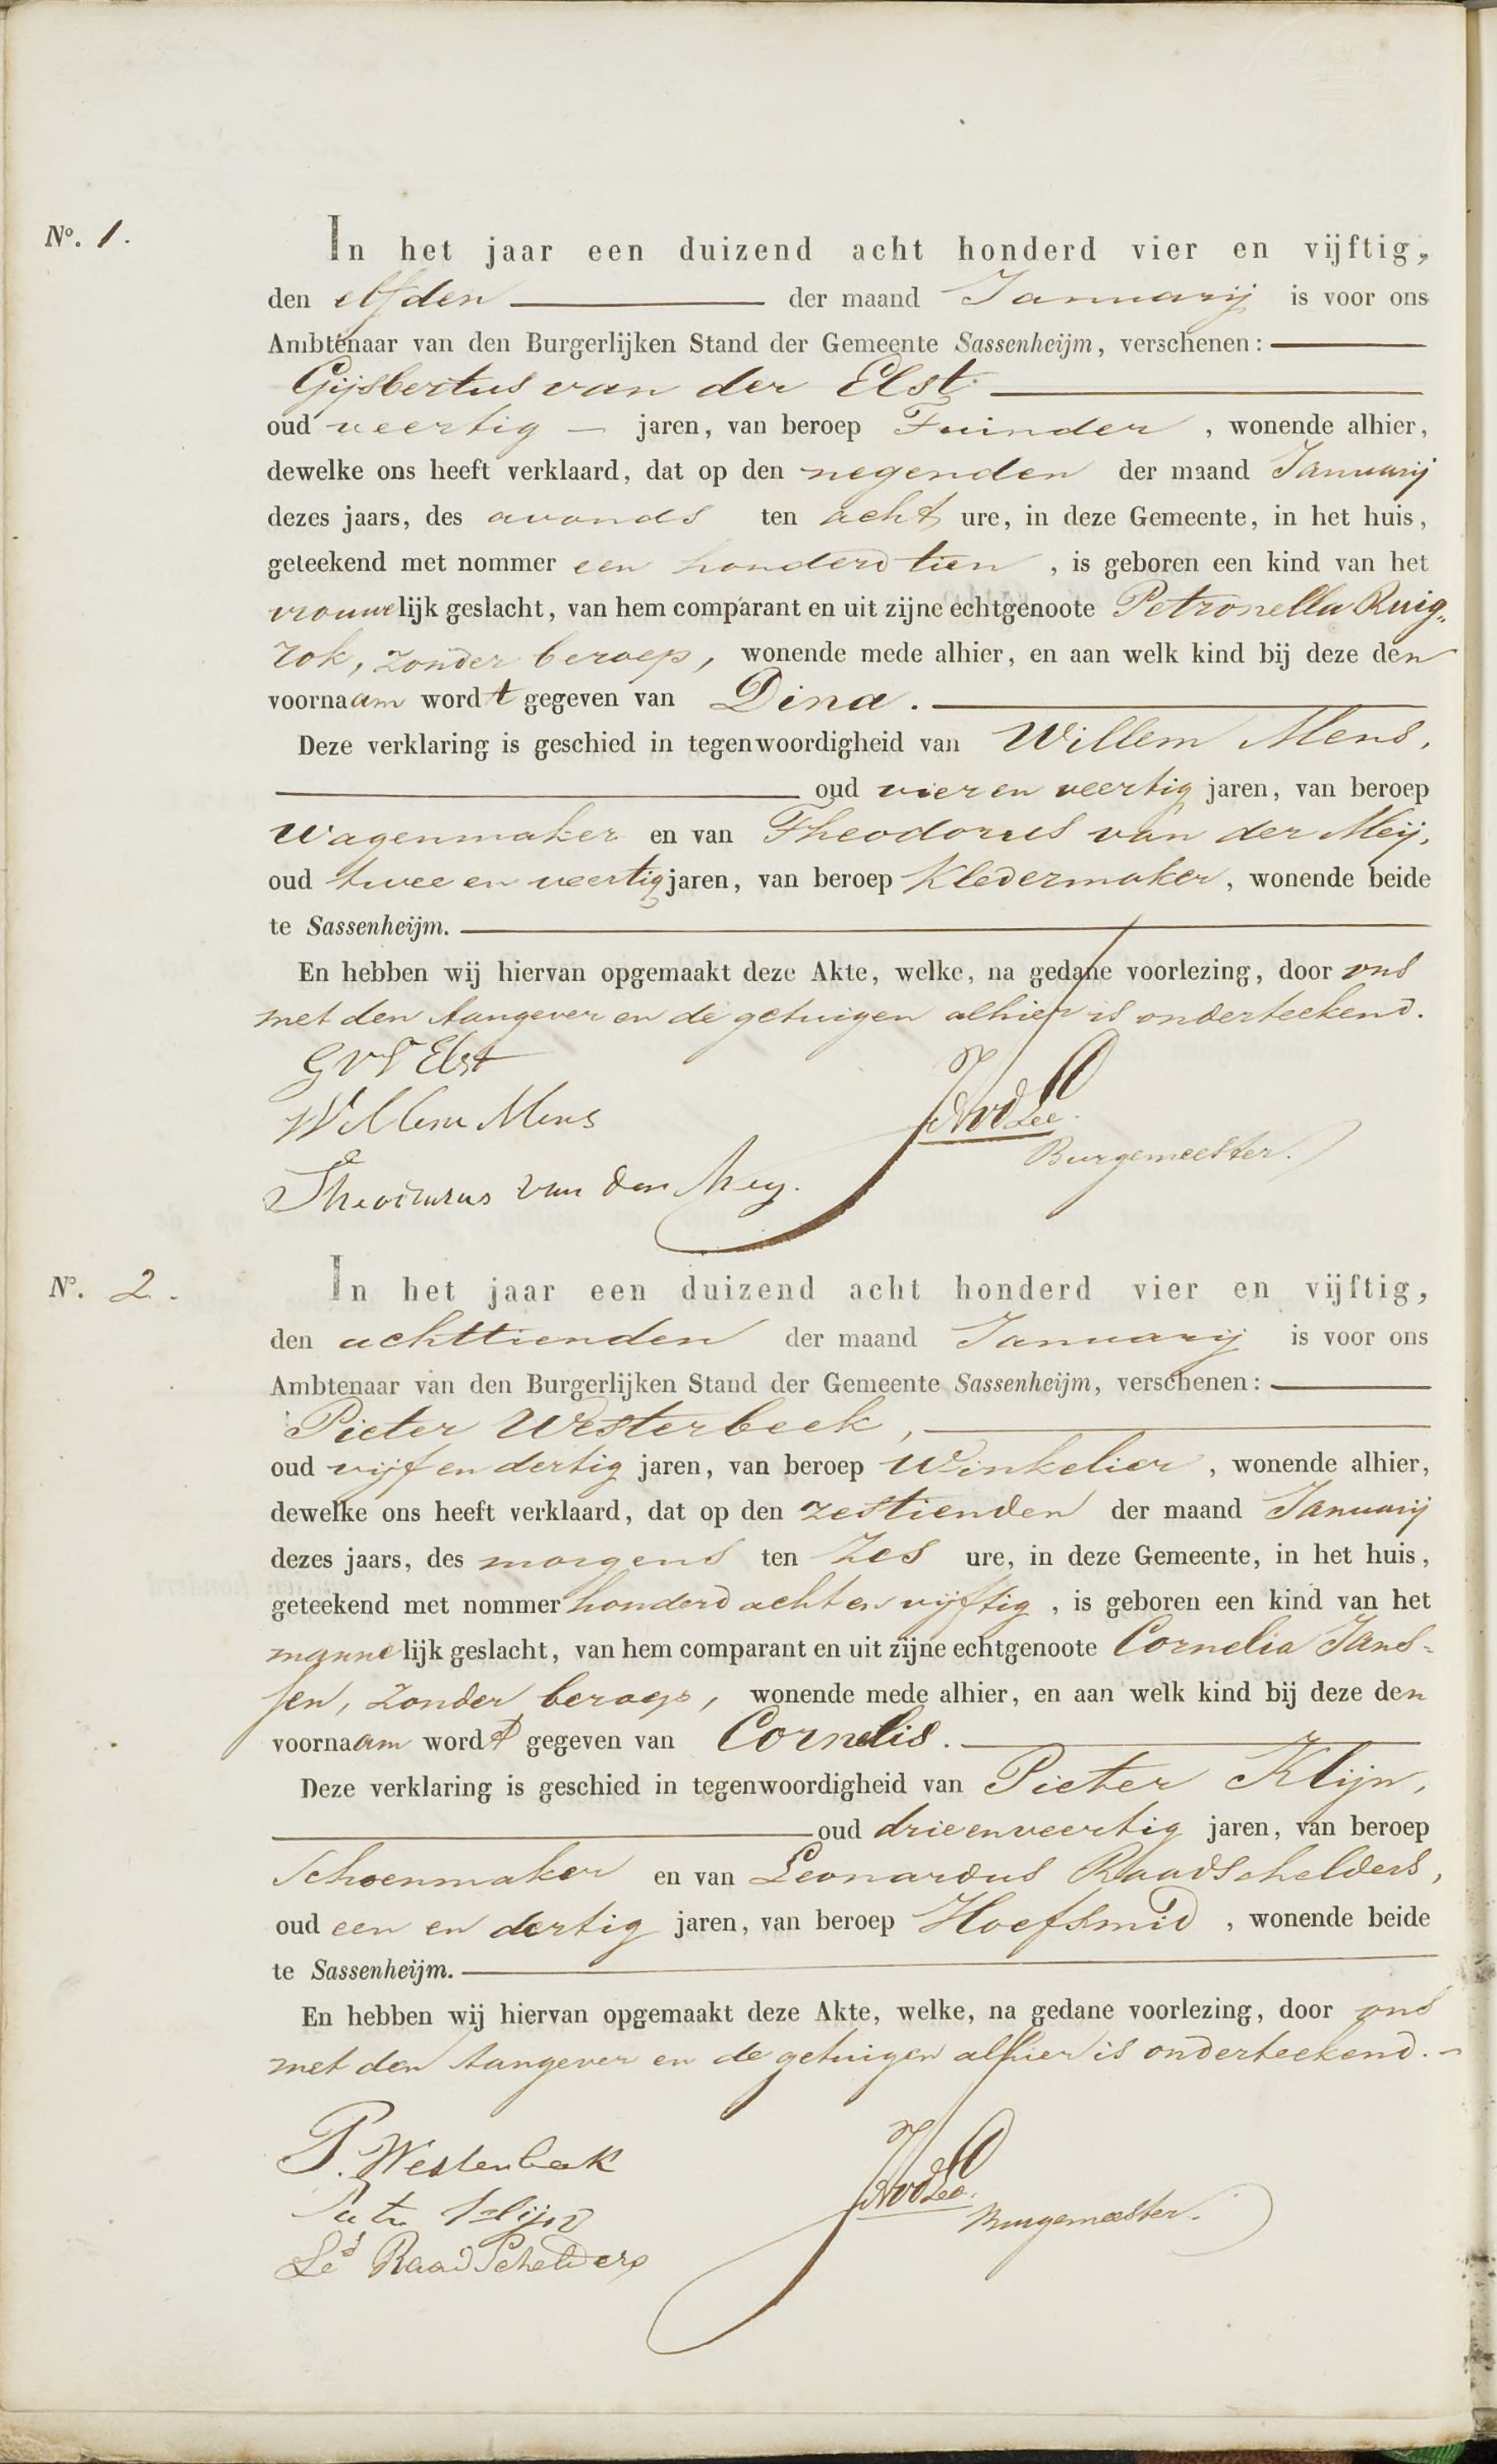 Nº. 1.
In het jaar een duizend acht honderd vier en vijftig,
den elfden der maand Januarij is voor ons
Ambtenaar van den Burgerlijken Stand der Gemeente Sassenheijm, verschenen:
Gijsbertus van der Elst
oud veertig jaren, van beroep Tuinder, wonende alhier,
dewelke ons heeft verklaard, dat op den negenden der maand Januarij
dezes jaars, des avonds ten acht ure, in deze Gemeente, in het huis,
geteekend met nommer een honderd tien, is geboren een kind van het
vrouwelijk geslacht, van hem comparant en uit zijne echtgenoote Petronella Ruig„
rok, zonder beroep, wonende mede alhier, en aan welk kind bij deze den
voornaam wordt gegeven van Dina.
Deze verklaring is geschied in tegenwoordigheid van Willem Mens,
oud vier en veertig jaren, van beroep
Wagenmaker en van Theodorus van der Meij,
oud twee en veertig jaren, van beroep Kledermaker, wonende beide
te Sassenheijm.
En hebben wij hiervan opgemaakt deze Akte, welke, na gedane voorlezing, door ons
met den Aangever en de getuigen alhier is onderteekend.
G V D Elst
Willem Mens
Theodurus van der Mey.
Burgemeester.
Nº. 2.
In het jaar een duizend acht honderd vier en vijftig,
den achttienden der maand Januarij is voor ons
Ambtenaar van den Burgerlijken Stand der Gemeente Sassenheijm, verschenen:
Pieter Westerbeek,
oud vijf en dertig jaren, van beroep Winkelier, wonende alhier,
dewelke ons heeft verklaard, dat op den zestienden der maand Januarij
dezes jaars, des morgens ten zes ure, in deze Gemeente, in het huis,
geteekend met nommer honderd acht en vijftig, is geboren een kind van het
mannelijk geslacht, van hem comparant en uit zijne echtgenoote Cornelia Jans-
sen, zonder beroep, wonende mede alhier, en aan welk kind bij deze den
voornaam wordt gegeven van Cornelis.
Deze verklaring is geschied in tegenwoordigheid van Pieter Klijn,
oud drieenveertig jaren, van beroep
Schoenmaker en van Leonardus Raadschelders,
oud een en dertig jaren, van beroep Hoefsmid, wonende beide
te Sassenheijm.
En hebben wij hiervan opgemaakt deze Akte, welke, na gedane voorlezing, door ons
met den Aangever en de getuigen alhier is onderteekend.
P. Westerbeek
Pieter Klijn
Le^d Raadschelders
Burgemeester.